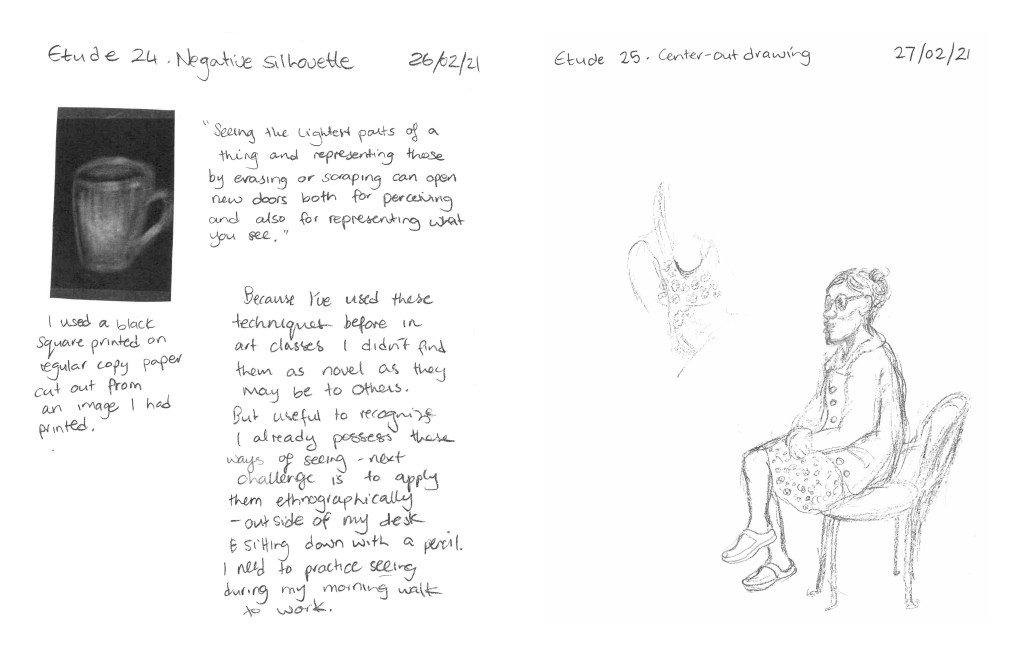 Etude 24. Negative silhouette
26/02/21
"Seeing the lightest parts of a
thing and representing those
by erasing or scraping can open
new doors both for perceiving
and also for representing what
you see."
I used a black
square printed on
regular copy paper
cut out from
an image I had
printed.
Because I've used these
techniques before in
art classes I didn't find
them as novel as they
may be to others.
But useful to recognize
I already possess these
ways of seeing - next
challenge is to apply
them ethnographically
- outside of my desk
& sitting down with a pencil.
I need to practice seeing
during my morning walk
to work.
Etude 25. Center-out drawing
27/02/21